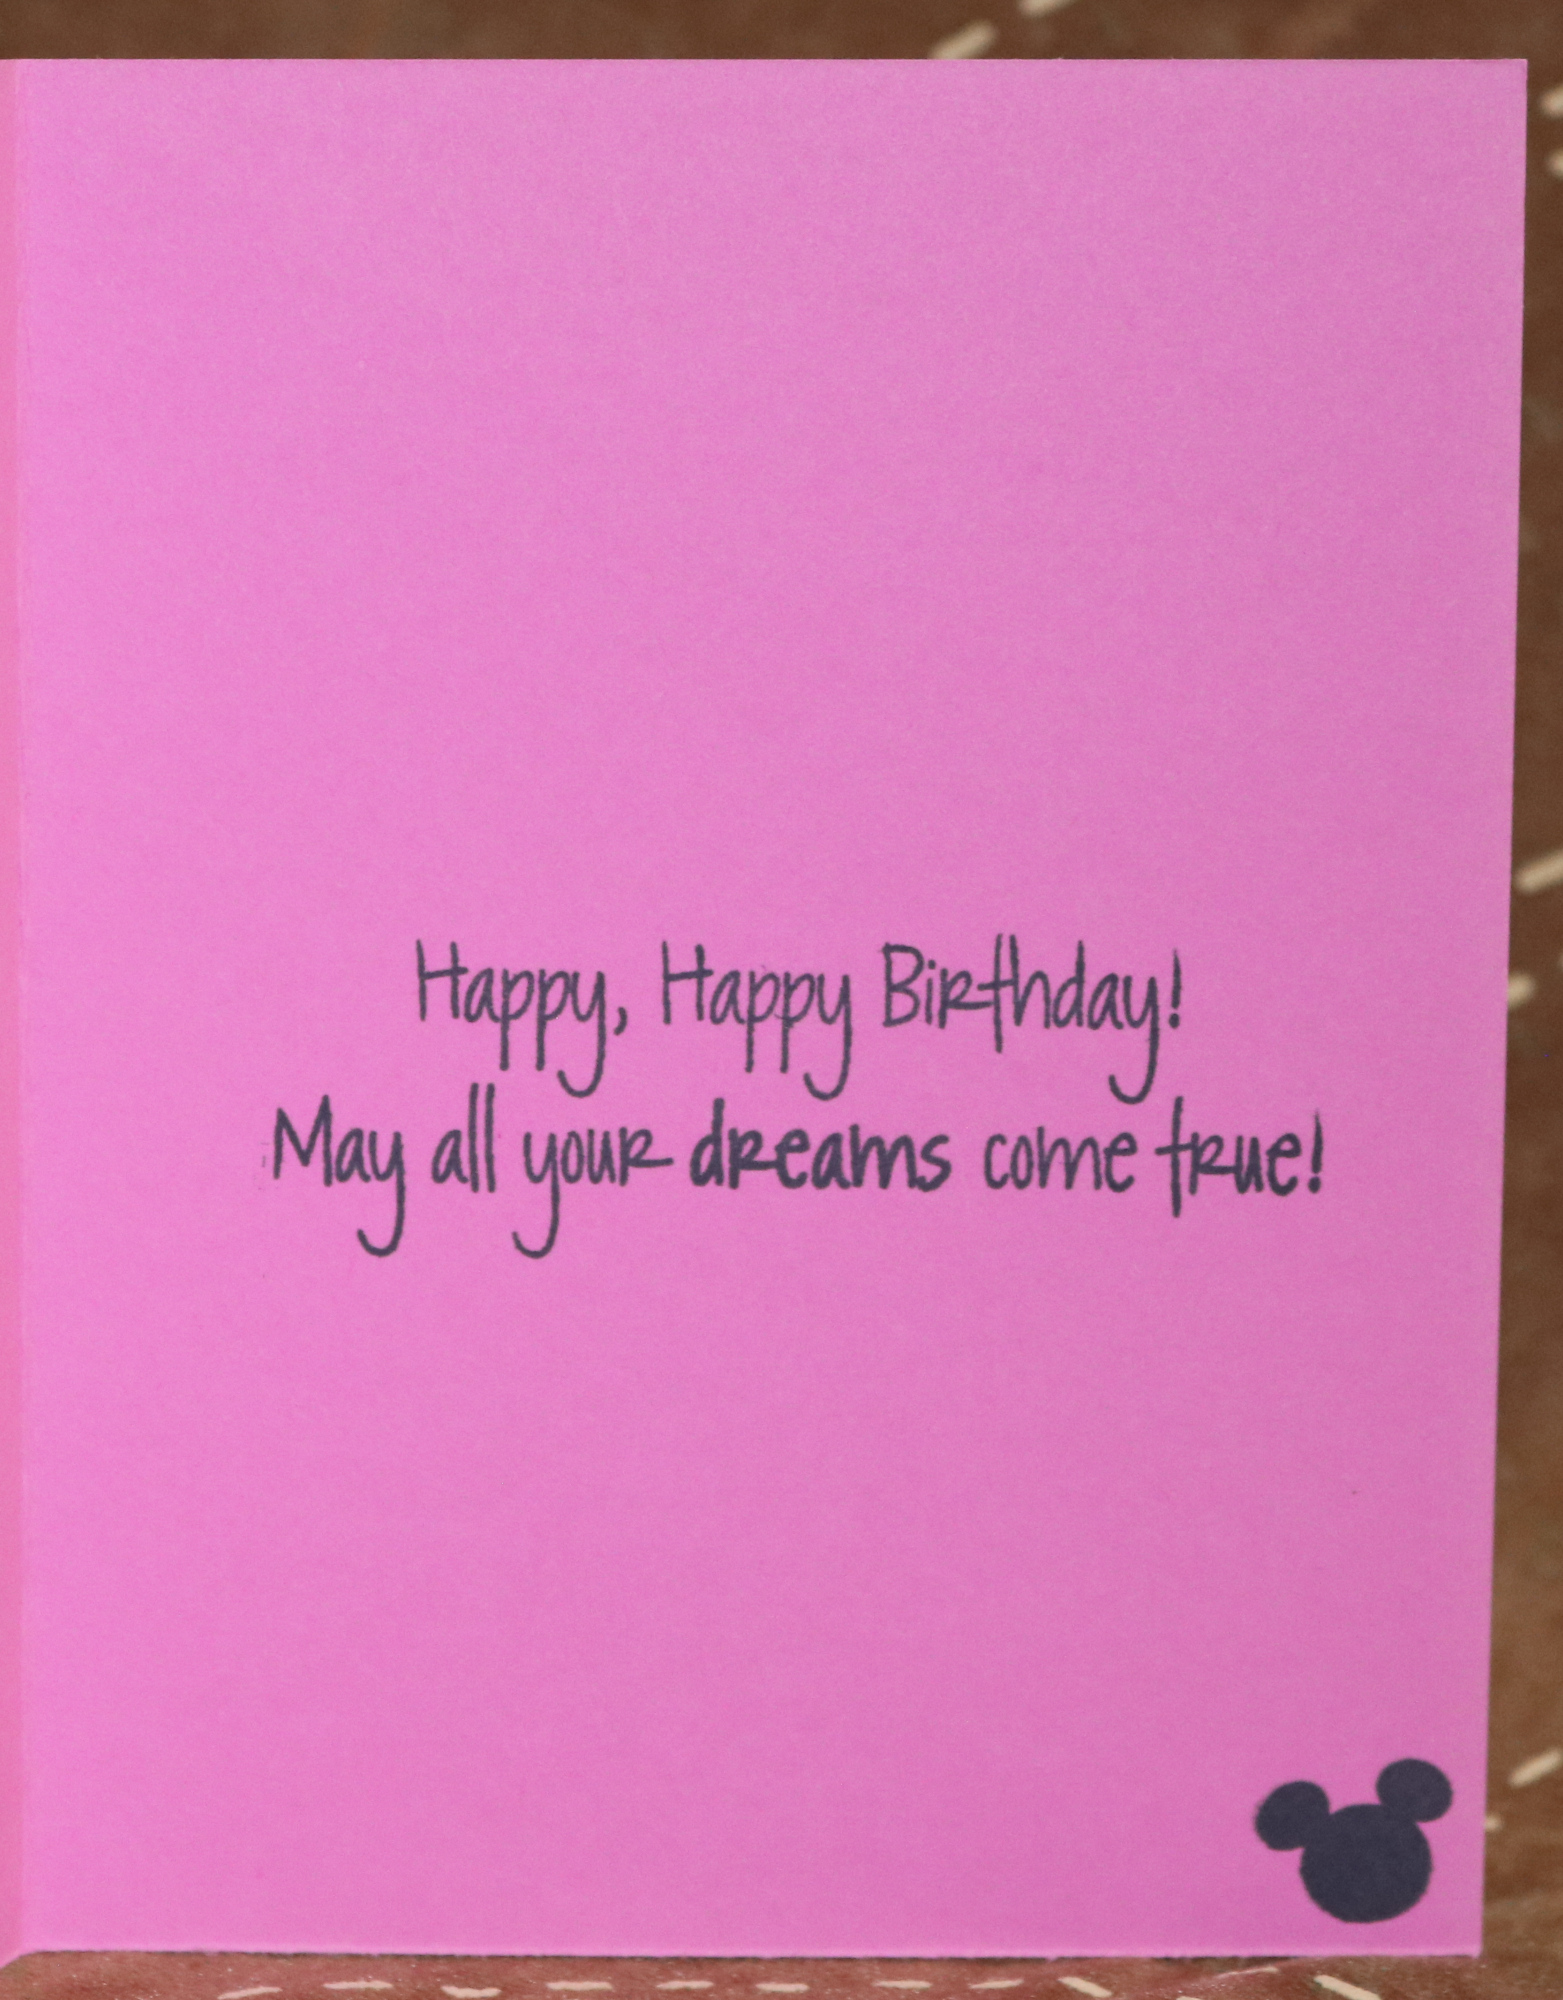 Happy, Happy Birthday!
May all your dreams come true!